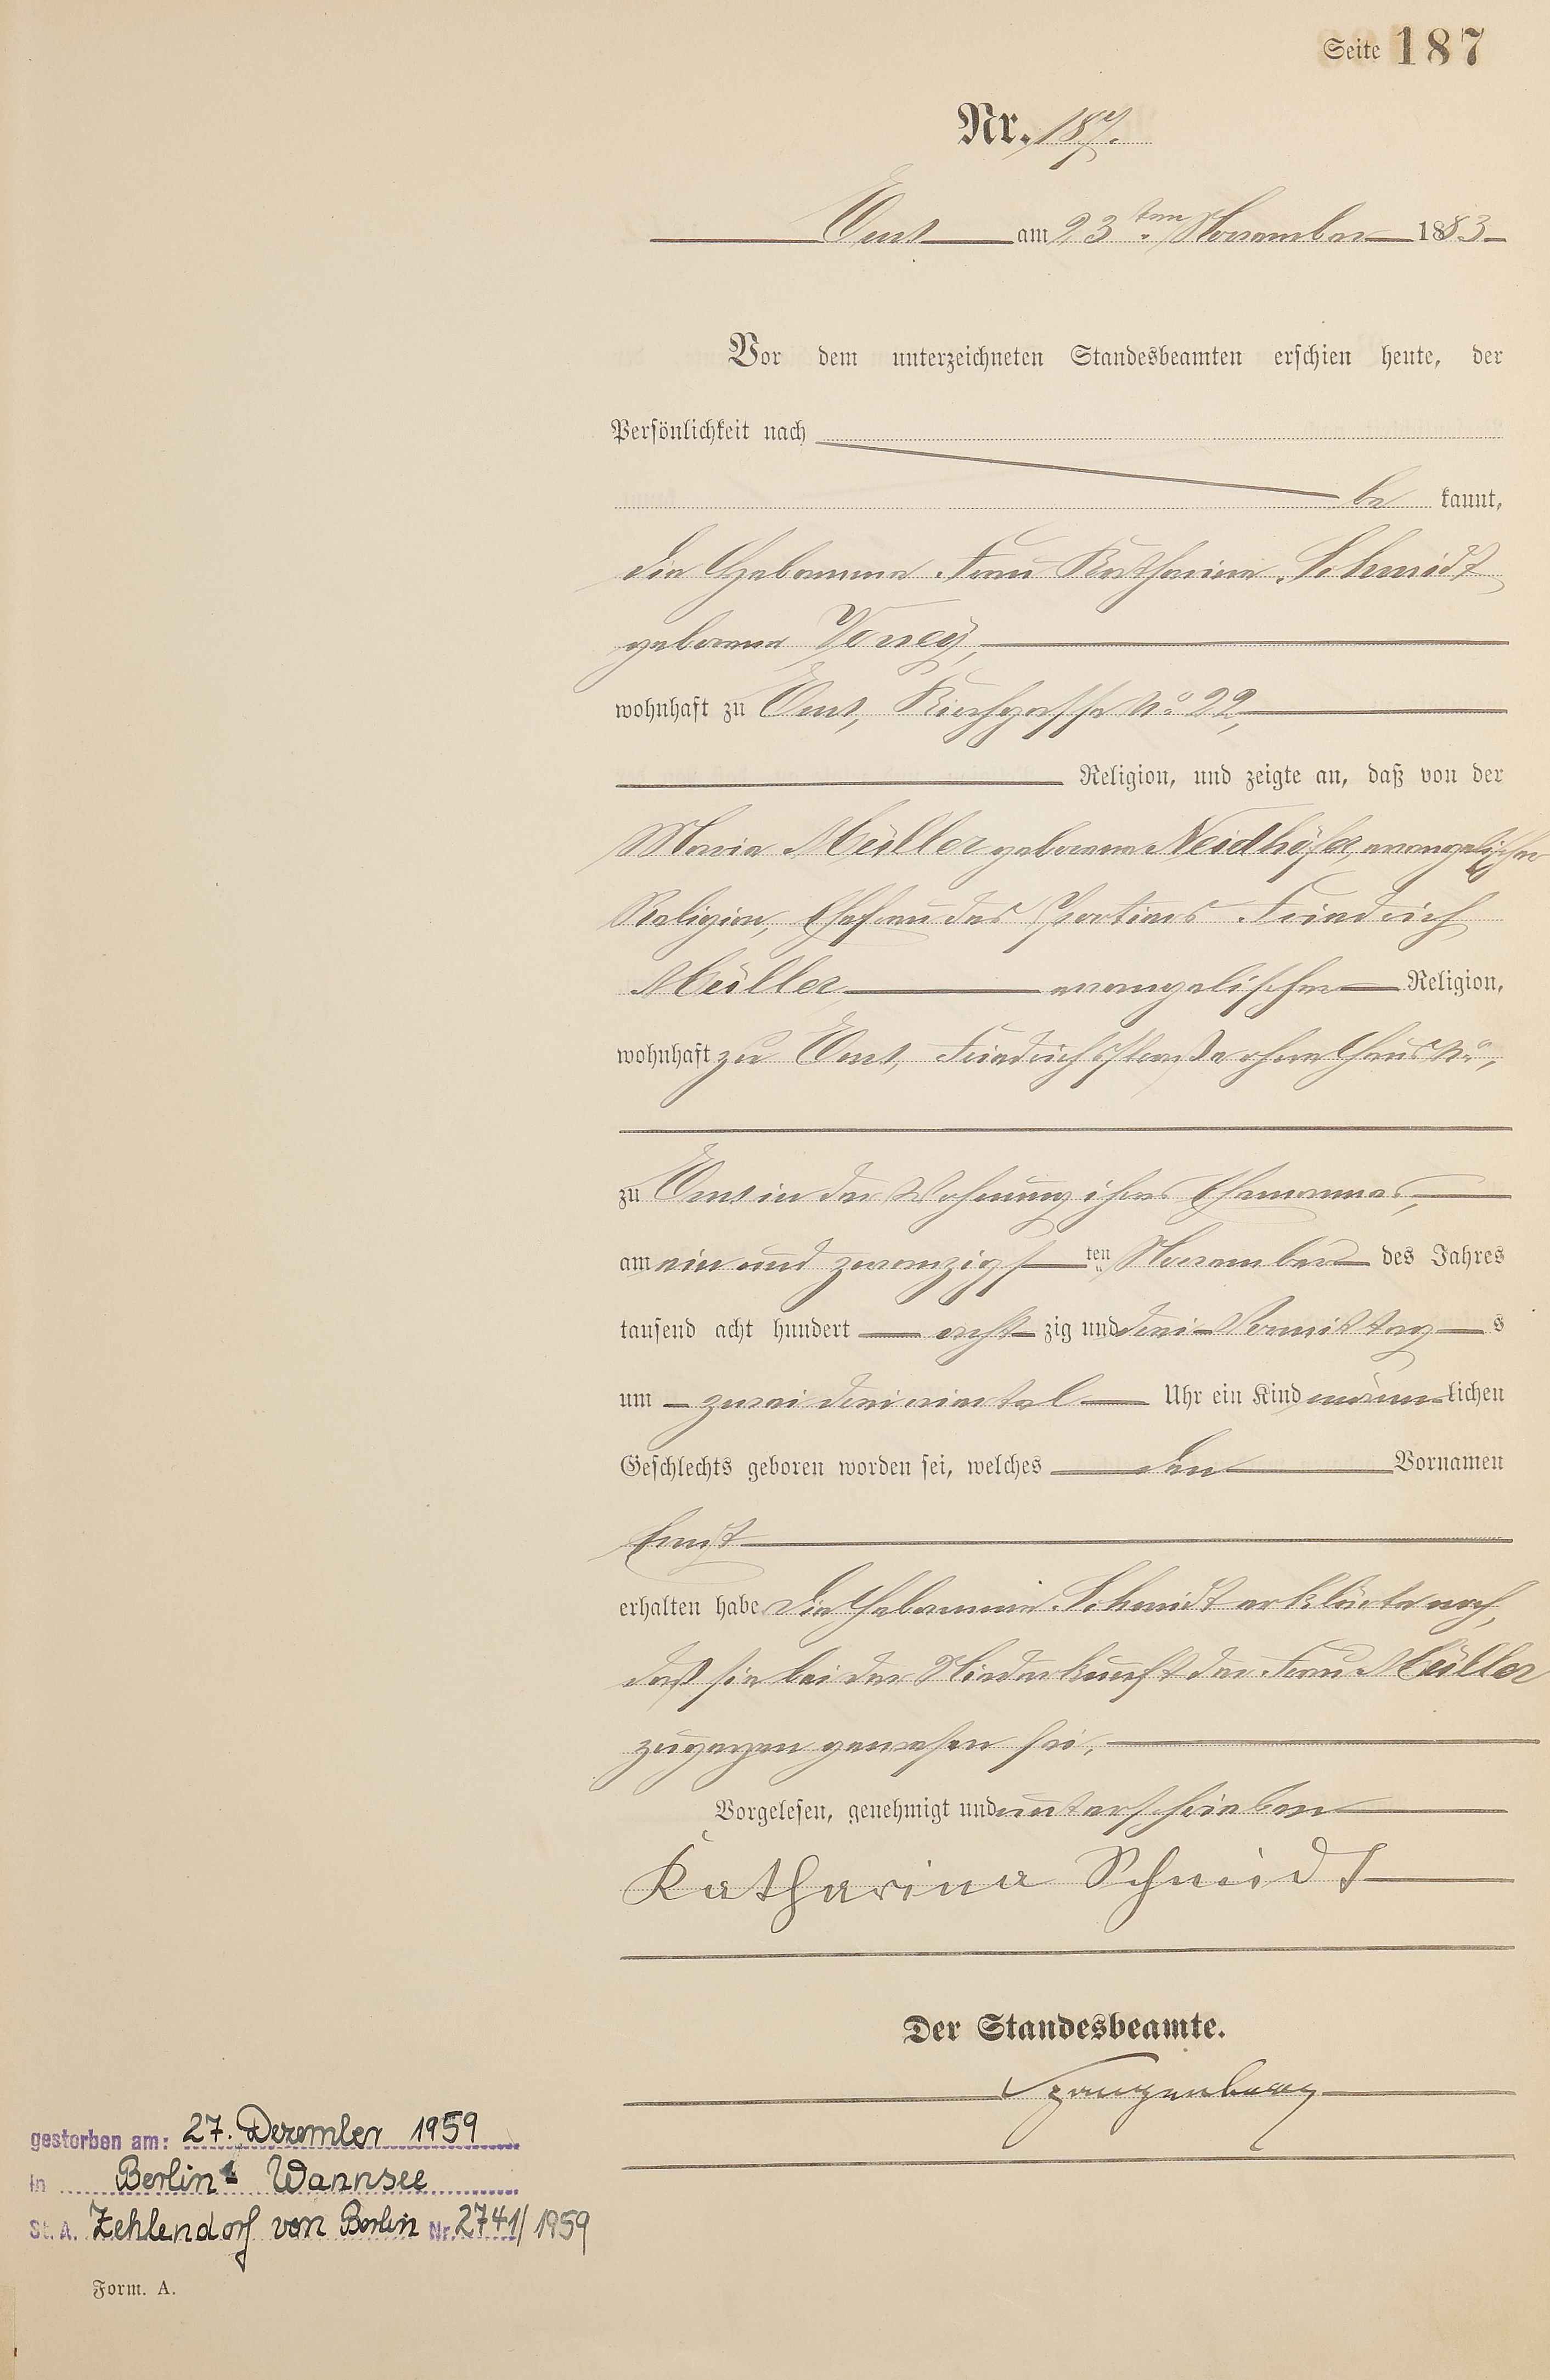 Seite 187
Nr. 187.
Ems am 23ten November 1883
Vor dem unterzeichneten Standesbeamten erschien heute, der
Persönlichkeit nach
be kannt,
die Hebamme Frau Katharina Schmidt
geborene
wohnhaft zu Ems, Kirchgasse No 22,
Religion, und zeigte an, daß von der
Maria Müller geborene Neidhöfer, evangelischer
Religion, Ehefrau des Portiers Friedrich
Müller evangelischer Religion,
wohnhaft zu Ems, Friedrichstraße ohne Haus No,
zu Ems in der Wohnung ihres Ehemannes,
am ein und zwanzigsten November des Jahres
tausend acht hundert acht zig und drei Vormittags
um zwei dreiviertel Uhr ein Kind männlichen
Geschlechts geboren worden sei, welches den Vornamen
Ernst
erhalten habe. Die Hebamme Schmidt erklärte noch,
daß sie bei der Niederkunft der Frau Müller
zugegen gewesen sei.
Vorgelesen, genehmigt und unterschrieben
Katharina Schmidt
Der Standesbeamte.
Spangenberg
gestorben am: 27. Dezember 1959
in Berlin-Wannsee
St. A. Zehlendorf von Berlin Nr. 2741/1959
Form. A.